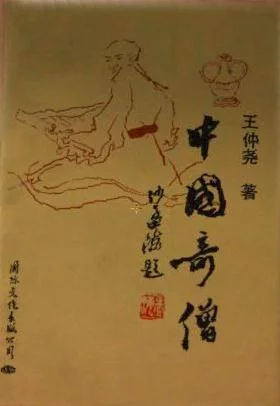 王仲尧 著
中國奇僧
沙孟海題
国际文化出版公司